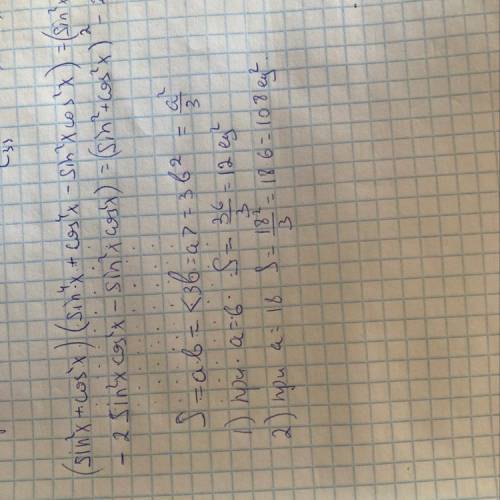 (sin²x + cos²x)(sin⁴x + cos⁴x - sin²x cos²x) = (sin²x
- 2 sin²x cos²x - sin²x cos²x) = (sin²x + cos²x)² -
S = a·b = <3b = a> = 3b² = a²/3
1) при a = 6. S = 36/3 = 12 см²
2) при a = 18 S = 18²/3 = 18·6 = 108 см².